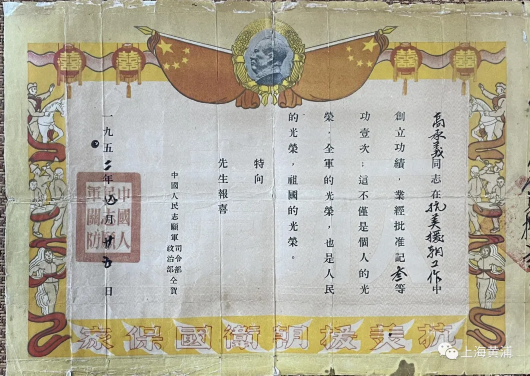 囍 囍 囍 囍
高承義同志在抗美援朝工作中
創立功績，業經批准記叁等
功壹次；這不僅是個人的光
榮，全軍的光榮，也是人民
的光榮，祖國的光榮。
特向
先生報喜
中國人民志願軍司令部政治部仝賀
一九五年月廿五日
中國人
民志願
軍關防
抗美援朝衛國保家
上海黄浦